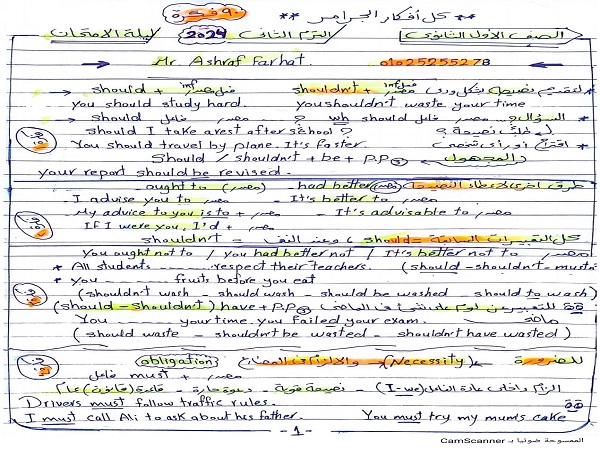 ** كل أفكار الجرامر **
٩٠ فكرة
الصف الأول الثانوى
الترم الثانى 2024
ليلة الامتحان
Mr Ashraf Farhat.
01025255278
should + inf مصدر
shouldn't + inf مصدر
لتقديم نصيحة بشكل ودى
You should study hard. you shouldn't waste your time
should فاعل مصدر ? wh should فاعل مصدر ? السؤال
should I take a rest after school? لـ طلب نصيحة ؟
You should travel by plane. It's faster. اقتراح أو رأى شخصى
Should / shouldn't + be + p.p③ والمجهول
your report should be revised.
ought to (مصدر) - had better (مصدر) طرق أخرى لإعطاء النصيحة
- I advise you to مصدر - It's better to مصدر
- My advice to you is to + مصدر - It's advisable to مصدر
- If I were you, I'd + مصدر
كل التعبيرات السابقة = should وعند النفى = shouldn't
You ought not to / you had better not / It's better not to مصدر
* All students ........... respect their teachers. (should - shouldn't - mustn
* you ........... fruits before you eat
(shouldn't wash - should wash - should be washed - should to wash)
(should - shouldn't) have + p.p③
You ........... your time. you failed your exam.
(should waste - shouldn't be wasted - shouldn't have wasted)
obligation والإلزام فى المضارع (Necessity) للضرورة
فاعل must + مصدر
(I - we) نصيحة قوية - دعوة حارة - قاعدة (قانون) عام
Drivers must follow traffic rules.
I must call Ali to ask about his father. You must try my mum's cake
- 1 -
الممسوحة ضوئيا بـ CamScanner